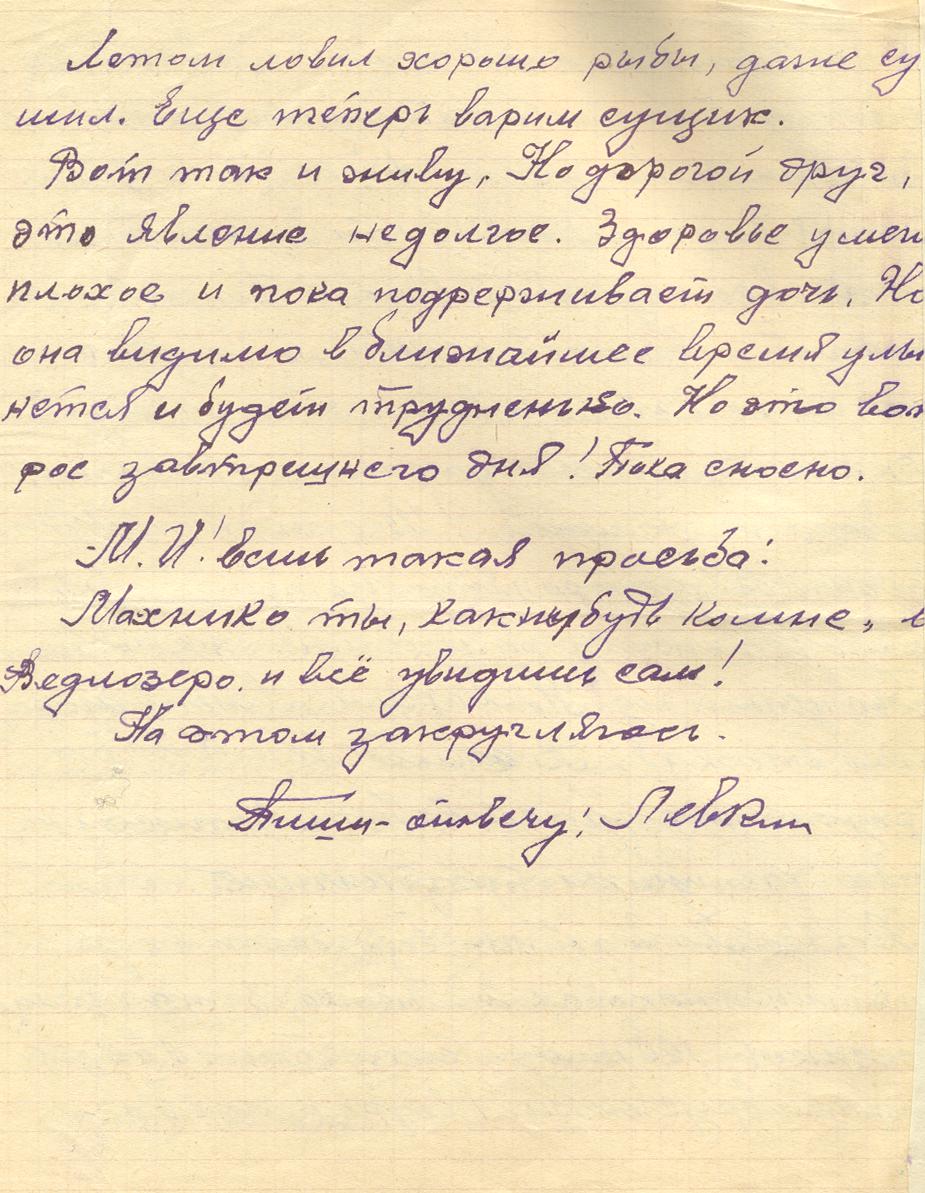 Летом ловил хорошо рыбы, даже су
шил. Еще теперь варим сущик.
Вот так и живу, Но дорогой друг,
это явление недолгое. Здоровье у меня
плохое и пока поддерживает дочь. Но
она видимо в ближайшее время улы
нется и будет трудненько. Но это воп
рос завтрешнего дня! Пока сносно.
М.И! есть такая просьба:
Махни ко ты, как нибудь ко мне, в
Ведлозеро. и всё увидишь сам!
На этом закругляюсь.
Пиши - отвечу! Левкин